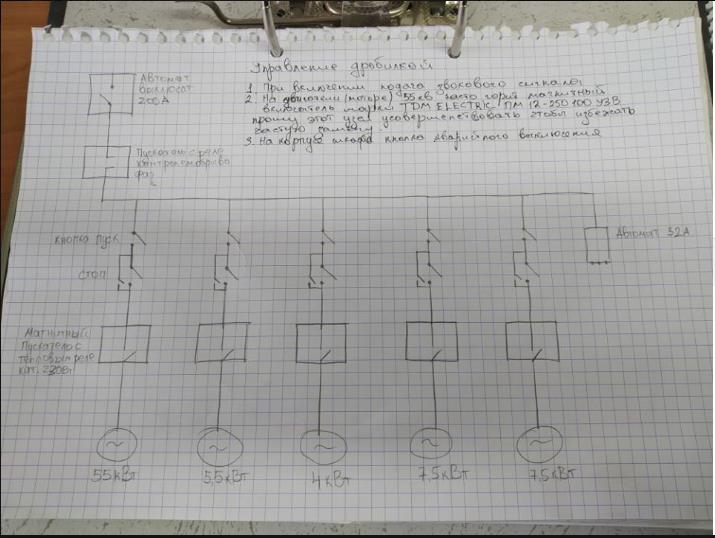 Управление дробилкой
Автомат
200А
1. При включении подача звокового сигнала
2. На двигатели (моторе) 55кв. часто горит магнитный
включатель марки TDM ELECTRIC ПМ 12-250100 УЗВ
прошу этот узел усовершенствовать чтобы избежать
частую замену.
3. На корпусе шкафа кнопка аварийного выключения
Пускатель с реле
фаз
кнопка пуск
Автомат 32А
стоп
Магнитный
Пускатель с
тепловым реле
кат. 220Вт
55кВт
5,5кВт
4кВт
7,5кВт
7,5кВт